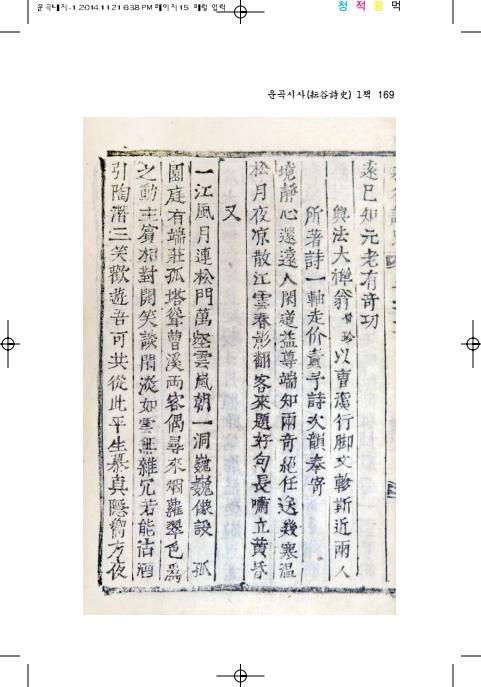 운곡내지-1 2014.11.21 6:38 PM 페이지15 매킬 입력
청 적 황 먹
운곡시사(耘谷詩史) 1책 169
遠已如元老有奇功
興法大禪翁 以曹溪行脚文軫斯近兩人
所著詩一軸走价責予詩次韻奉寄
境靜心還遠人閑道益尊端知兩奇絕任送幾寒溫
松月夜凉散江雲春影翻客來題好句長嘯立黃昏
又
一江風月連松門萬壑雲嵐朝一洞巍巍像設 孤
園庭有端莊孤塔聳曹溪兩客偶尋來烟蘿翠色爲
之動主賓相對開笑談閑淡如雲無雜冗若能沽酒
引陶潛三笑歡遊吾可共從此平生慕眞隱嚮方夜